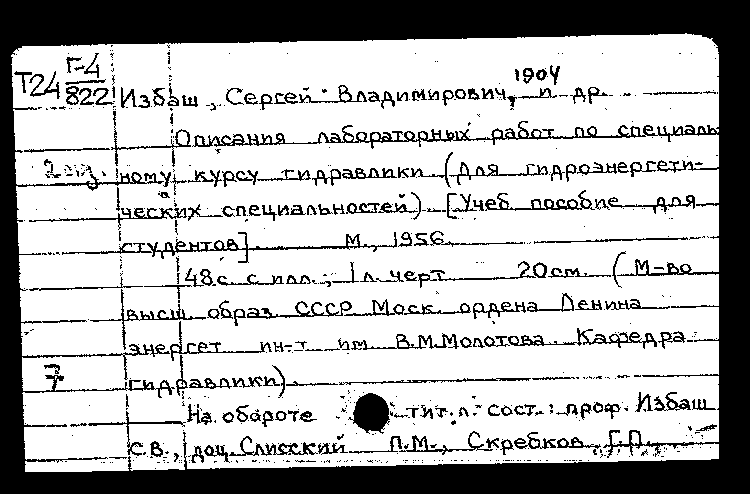 Т24 Г-4
822
1904
Избаш, Сергей Владимирович, и др.
Описания лабораторных работ по специаль
2 экз. ному курсу гидравлики (для гидроэнергети-
ческих специальностей) [Учеб пособие для
студентов] М., 1956.
48с. с илл.; 1 л. черт 20см. (М-во
высш. образ. СССР Моск. ордена Ленина
энергет ин-т им В.М.Молотова Кафедра
7 гидравлики).
На обороте тит.л. сост.: проф. Избаш
С.В., доц. Слисский П.М., Скребков Г.П.